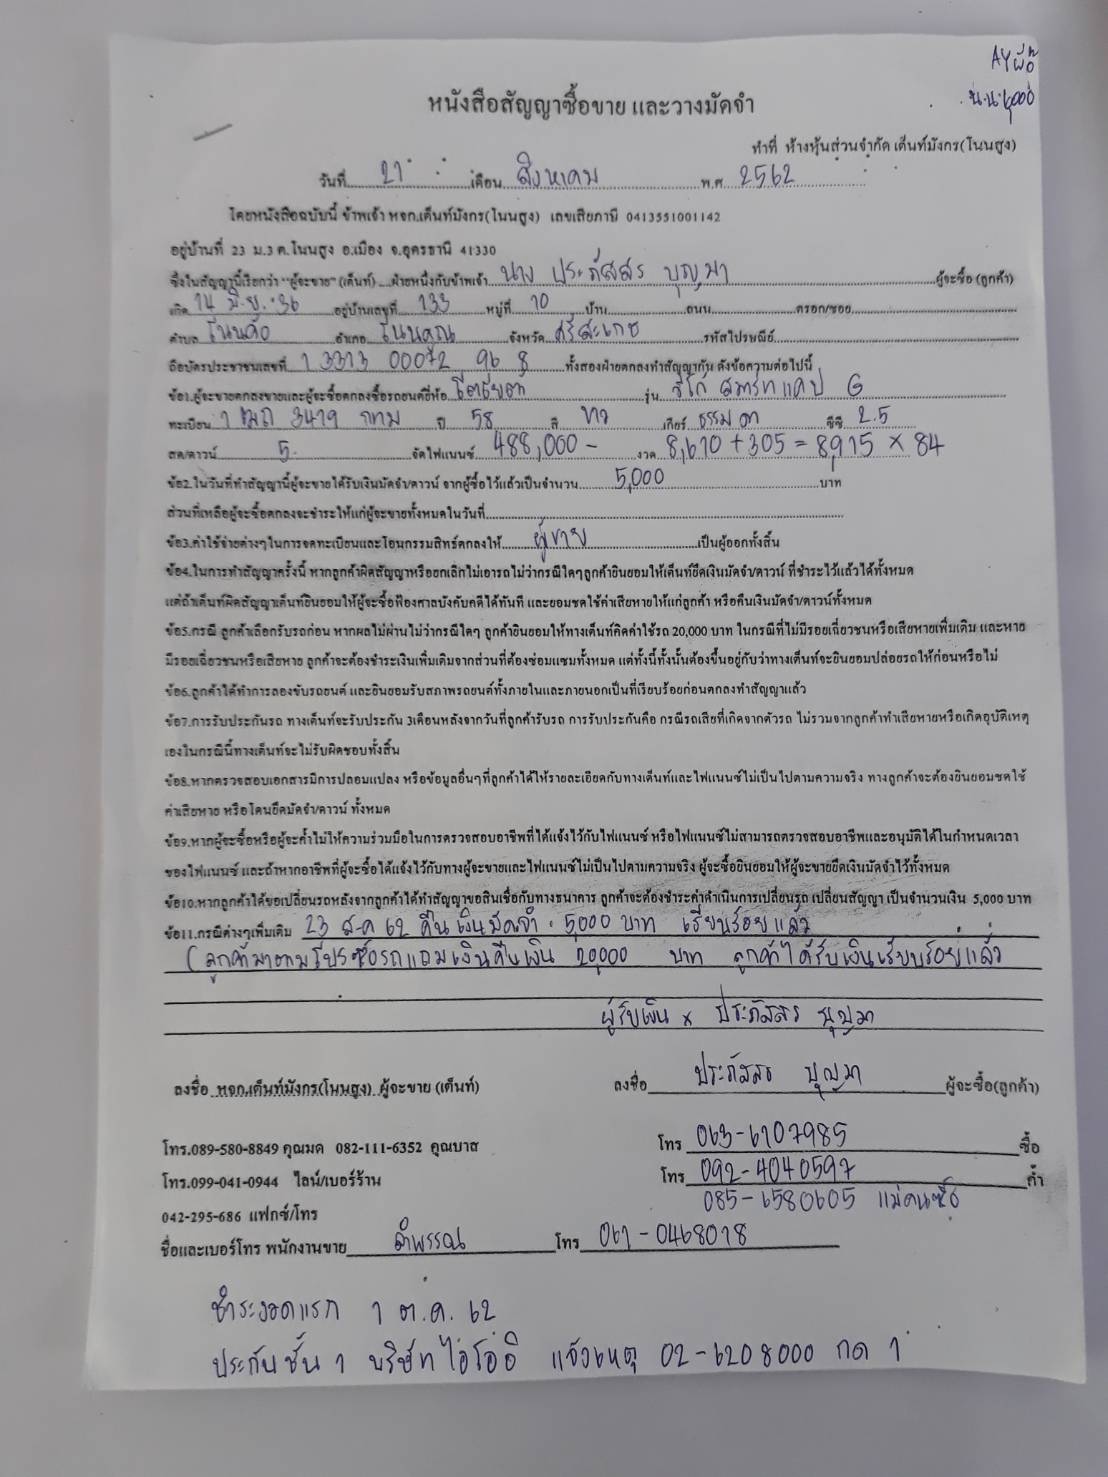 AY
น.น.6,000
หนังสือสัญญาซื้อขาย และวางมัดจำ
ทำที่ ห้างหุ้นส่วนจำกัด เต็นท์มังกร(โนนสูง)
วันที่ 21 เดือน สิงหาคม พ.ศ 2562
โดยหนังสือฉบับนี้ ข้าพเจ้า หจก.เต็นท์มังกร(โนนสูง) เลขเสียภาษี 0413551001142
อยู่บ้านที่ 23 ม.3 ต.โนนสูง อ.เมือง จ.อุดรธานี 41330
ซึ่งในสัญญานี้เรียกว่า "ผู้จะขาย" (เต็นท์) ฝ่ายหนึ่งกับข้าพเจ้า นาง ประภัสสร บุญมา ผู้จะซื้อ (ลูกค้า)
เกิด 14 มิ.ย. 36 อยู่บ้านเลขที่ 133 หมู่ที่ 10 บ้าน ถนน ตรอก/ซอย
ตำบล โนนค้อ อำเภอ โนนคูณ จังหวัด ศรีสะเกษ รหัสไปรษณีย์
ถือบัตรประชาชนเลขที่ 1 3313 00072 96 8 ทั้งสองฝ่ายตกลงทำสัญญากัน ดังข้อความต่อไปนี้
ข้อ1.ผู้จะขายตกลงขายและผู้จะซื้อตกลงซื้อรถยนต์ยี่ห้อ โตโยต้า รุ่น วีโก้ สมาร์ทแคป G
ทะเบียน 1 ฒถ 3419 กทม ปี 58 สี ขาว เกียร์ ธรรมดา ซีซี 2.5
สด/ดาวน์ 5 จัดไฟแนนซ์ 488,000 - งวด 8,610 + 305 = 8,915 × 84
ข้อ2.ในวันที่ทำสัญญานี้ผู้จะขายได้รับเงินมัดจำ/ดาวน์ จากผู้ซื้อไว้แล้วเป็นจำนวน 5,000 บาท
ส่วนที่เหลือผู้จะซื้อตกลงจะชำระให้แก่ผู้จะขายทั้งหมดในวันที่
ข้อ3.ค่าใช้จ่ายต่างๆในการจดทะเบียนและโอนกรรมสิทธ์ตกลงให้ ผู้ขาย เป็นผู้ออกทั้งสิ้น
ข้อ4.ในการทำสัญญาครั้งนี้ หากลูกค้าผิดสัญญาหรือยกเลิกไม่เอารถไม่ว่ากรณีใดๆลูกค้ายินยอมให้เต็นท์ยึดเงินมัดจำ/ดาวน์ ที่ชำระไว้แล้วได้ทั้งหมด
แต่ถ้าเต็นท์ผิดสัญญาเต็นท์ยินยอมให้ผู้จะซื้อฟ้องศาลบังคับคดีได้ทันที และยอมชดใช้ค่าเสียหายให้แก่ลูกค้า หรือคืนเงินมัดจำ/ดาวน์ทั้งหมด
ข้อ5.กรณี ลูกค้าเลือกรับรถก่อน หากผลไม่ผ่านไม่ว่ากรณีใดๆ ลูกค้ายินยอมให้ทางเต็นท์คิดค่าใช้รถ 20,000 บาท ในกรณีที่ไม่มีรอยเฉี่ยวชนหรือเสียหายเพิ่มเติม และหาย
มีรอยเฉี่ยวชนหรือเสียหาย ลูกค้าจะต้องชำระเงินเพิ่มเติมจากส่วนที่ต้องซ่อมแซมทั้งหมด แต่ทั้งนี้ทั้งนั้นต้องขึ้นอยู่กับว่าทางเต็นท์จะยินยอมปล่อยรถให้ก่อนหรือไม่
ข้อ6.ลูกค้าได้ทำการลองขับรถยนต์ และยินยอมรับสภาพรถยนต์ทั้งภายในและภายนอกเป็นที่เรียบร้อยก่อนตกลงทำสัญญาแล้ว
ข้อ7.การรับประกันรถ ทางเต็นท์จะรับประกัน 3เดือนหลังจากวันที่ลูกค้ารับรถ การรับประกันคือ กรณีรถเสียที่เกิดจากตัวรถ ไม่รวมจากลูกค้าทำเสียหายหรือเกิดอุบัติเหตุ
เองในกรณีนี้ทางเต็นท์จะไม่รับผิดชอบทั้งสิ้น
ข้อ8.หากตรวจสอบเอกสารมีการปลอมแปลง หรือข้อมูลอื่นๆที่ลูกค้าได้ให้รายละเอียดกับทางเต็นท์และไฟแนนซ์ไม่เป็นไปตามความจริง ทางลูกค้าจะต้องยินยอมชดใช้
ค่าเสียหาย หรือโดนยึดมัดจำ/ดาวน์ ทั้งหมด
ข้อ9.หากผู้จะซื้อหรือผู้จะค้ำไม่ให้ความร่วมมือในการตรวจสอบอาชีพที่ได้แจ้งไว้กับไฟแนนซ์ หรือไฟแนนซ์ไม่สามารถตรวจสอบอาชีพและอนุมัติได้ในกำหนดเวลา
ของไฟแนนซ์ และถ้าหากอาชีพที่ผู้จะซื้อได้แจ้งไว้กับทางผู้จะขายและไฟแนนซ์ไม่เป็นไปตามความจริง ผู้จะซื้อยินยอมให้ผู้จะขายยึดเงินมัดจำไว้ทั้งหมด
ข้อ10.หากลูกค้าได้ขอเปลี่ยนรถหลังจากลูกค้าได้ทำสัญญาขอสินเชื่อกับทางธนาคาร ลูกค้าจะต้องชำระค่าดำเนินการเปลี่ยนรถ เปลี่ยนสัญญา เป็นจำนวนเงิน 5,000 บาท
ข้อ11.กรณีต่างๆเพิ่มเติม 23 ส.ค 62 คืนเงินมัดจำ 5,000 บาท เรียบร้อยแล้ว
(ลูกค้ามาตามโปรซื้อรถแถมเงินคืนเงิน 20,000 บาท ลูกค้าได้รับเงินเรียบร้อยแล้ว
ผู้รับเงิน x ประภัสสร บุญมา
ลงชื่อ หจก.เต็นท์มังกร(โนนสูง) ผู้จะขาย (เต็นท์) ลงชื่อ ประภัสสร บุญมา ผู้จะซื้อ(ลูกค้า)
โทร.089-580-8849 คุณมด 082-111-6352 คุณบาส โทร 063-6107985 ซื้อ
โทร.099-041-0944 ไลน์/เบอร์ร้าน โทร 092-4040597 ค้ำ
042-295-686 แฟกซ์/โทร 085-6580605 แม่คนซื้อ
ชื่อและเบอร์โทร พนักงานขาย ลำพรรณ โทร 061-0468018
ชำระงวดแรก 1 ต.ค. 62
ประกันชั้น 1 บริษัทไอโออิ แจ้งเหตุ 02-6208000 กด 1